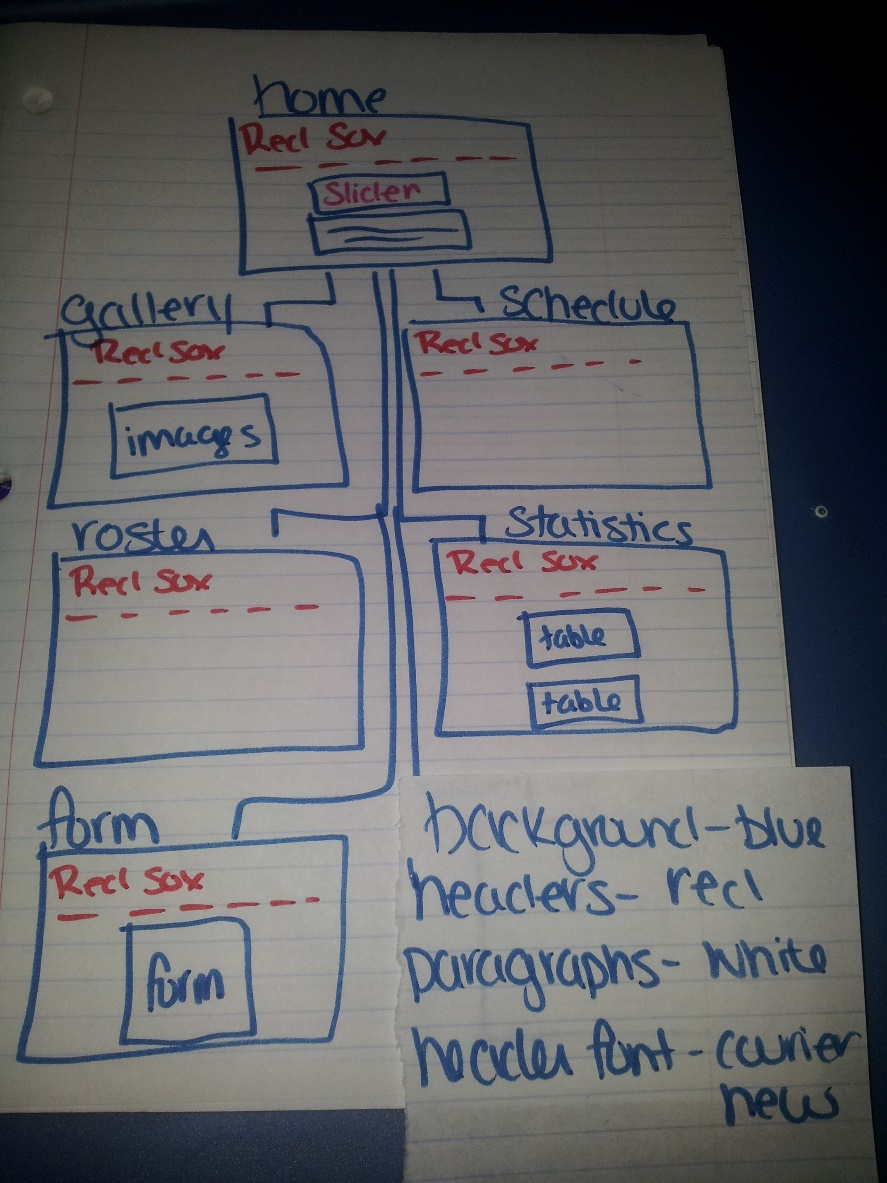 home
Red Sox
Slider
gallery
Red Sox
images
schedule
Red Sox
roster
Red Sox
statistics
Red Sox
table
table
form
Red Sox
form
background - blue
headers - red
paragraphs - white
header font - courier
new